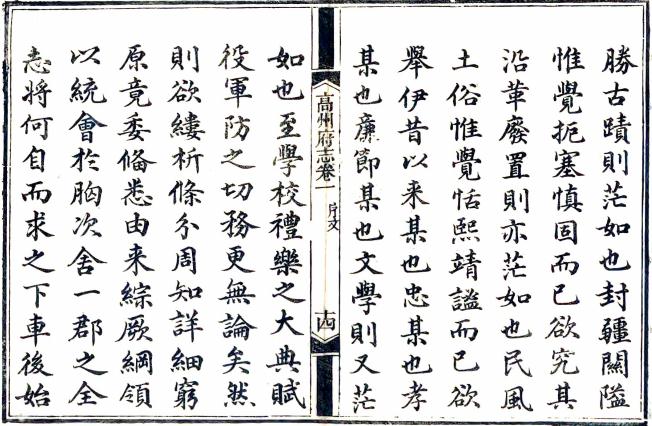 勝古蹟則茫如也封疆關隘
惟覺扼塞慎固而已欲究其
沿革廢置則亦茫如也民風
土俗惟覺恬熙靖謐而已欲
舉伊昔以来某也忠某也孝
某也廉節某也文學則又茫
高州府志卷一 序文 十四
如也至學校禮樂之大典賦
役軍防之切務更無論矣然
則欲縷析條分周知詳細窮
原竟委俻悉由来綜厥綱領
以統會於胸次舍一郡之全
志將何自而求之下車後始